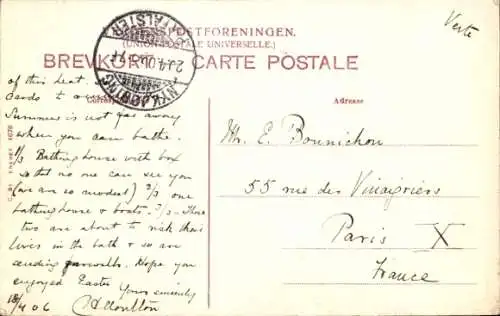 Verte
VERDENSPOSTFORENINGEN.
(UNION POSTALE UNIVERSELLE.)
BREVKORT. CARTE POSTALE
NYKJØBING FALSTER
Adresse
of this heat.
Cards to
Summer is not far away
when you can bathe.
1/3 Bathing house with box
so that no one can see you
(we are so modest) 2/3 one
bathinghouse & boats. 3/3 - These
two are about to risk their
lives in the bath & so are
sending farewells. Hope you
enjoyed Easter
Yours sincerely
18/4 06
Mr. E. Bounichon
55 rue des Vinaigriers
Paris X
France